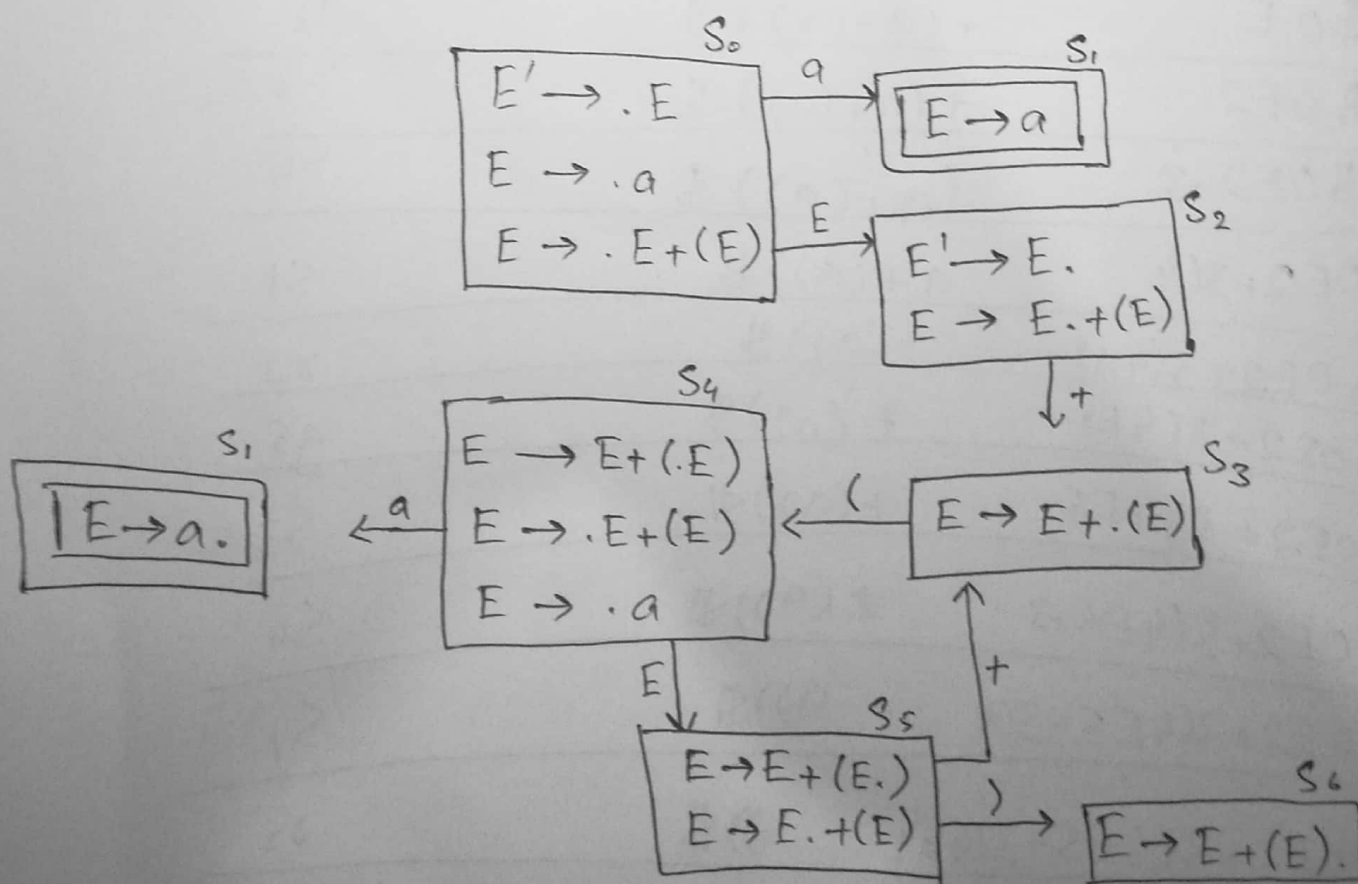 S₀
E' → . E
E → . a
E → . E+(E)
a
S₁
E → a
E
S₂
E' → E.
E → E.+(E)
+
S₃
E → E+.(E)
(
S₄
E → E+(.E)
E → .E+(E)
E → .a
a
S₁
E → a.
E
S₅
E → E+(E.)
E → E.+(E)
+
)
S₆
E → E+(E).